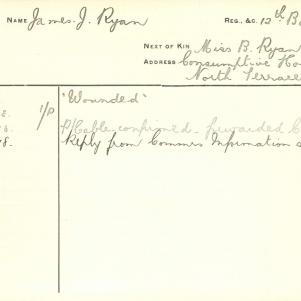 NAME James. J. Ryan REG., &C. 12th. B
NEXT OF KIN Miss B. Ryan
ADDRESS Consumptive Ho
North Terrace
"Wounded"
1/P
P/Cable confirmed. forwarded C
8. Reply from Commrs Information s